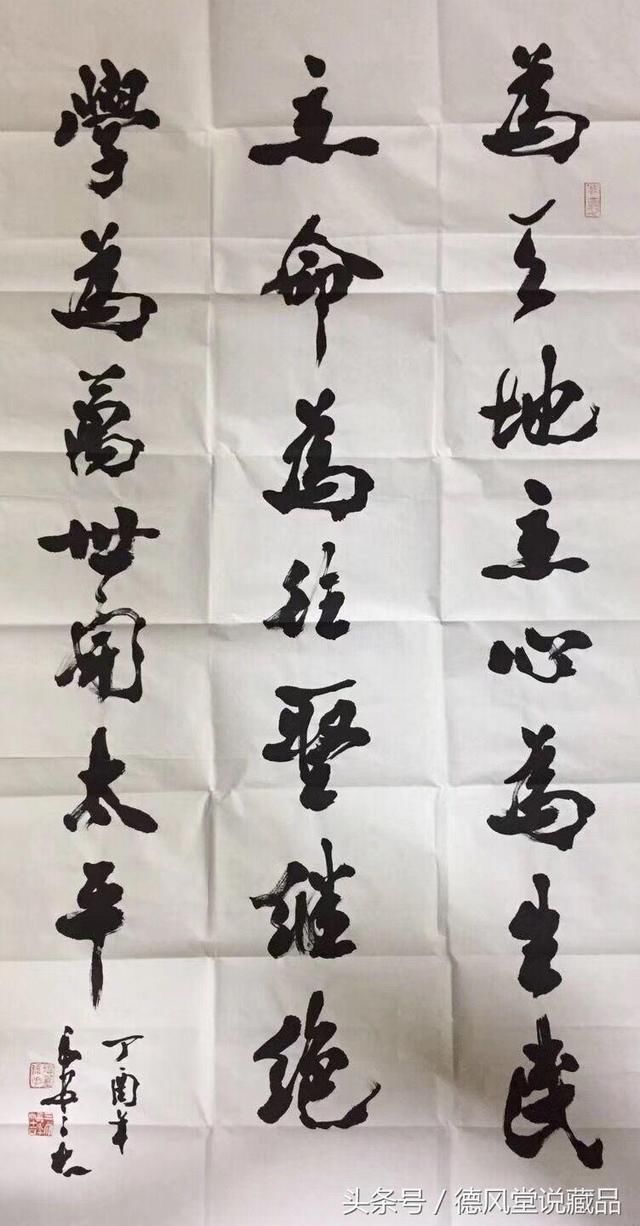 為天地立心為生民
立命為往聖繼絕
學為萬世開太平
丁酉年
头条号 / 德风堂说藏品